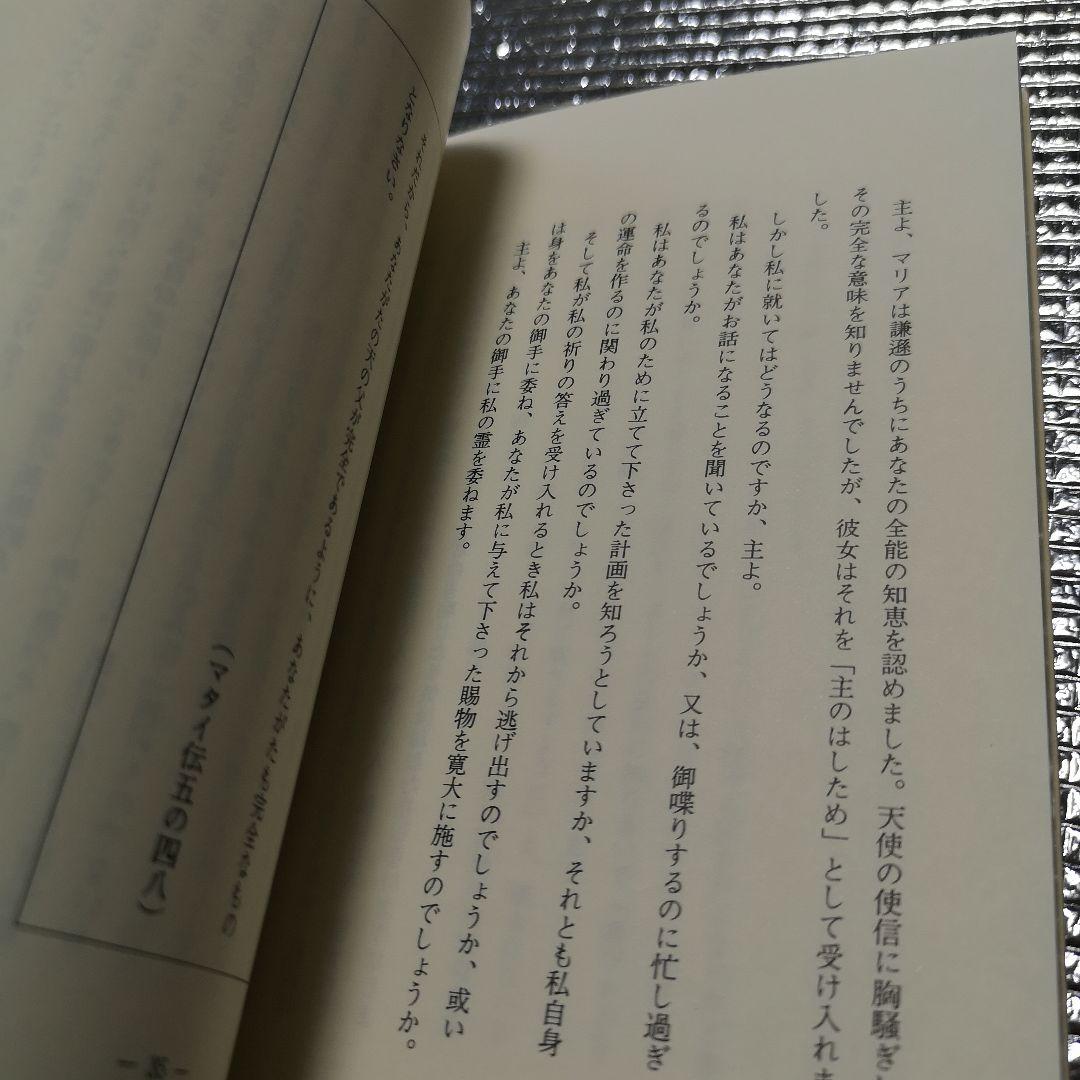 主よ、マリアは謙遜のうちにあなたの全能の知恵を認めました。天使の使信に胸騒ぎ
その完全な意味を知りませんでしたが、彼女はそれを「主のはしため」として受け入れま
した。
しかし私に就いてはどうなるのですか、主よ。
私はあなたがお話になることを聞いているでしょうか、又は、御喋りするのに忙し過ぎ
るのでしょうか。
私はあなたが私のために立てて下さった計画を知ろうとしていますか、それとも私自身
の運命を作るのに関わり過ぎているのでしょうか。
そして私が私の祈りの答えを受け入れるとき私はそれから逃げ出すのでしょうか、或い
は身をあなたの御手に委ね、あなたが私に与えて下さった賜物を寛大に施すのでしょうか。
主よ、あなたの御手に私の霊を委ねます。
それだから、あなたがたの天の父が完全であるように、あなたがたも完全なもの
となりなさい。
（マタイ伝五の四八）